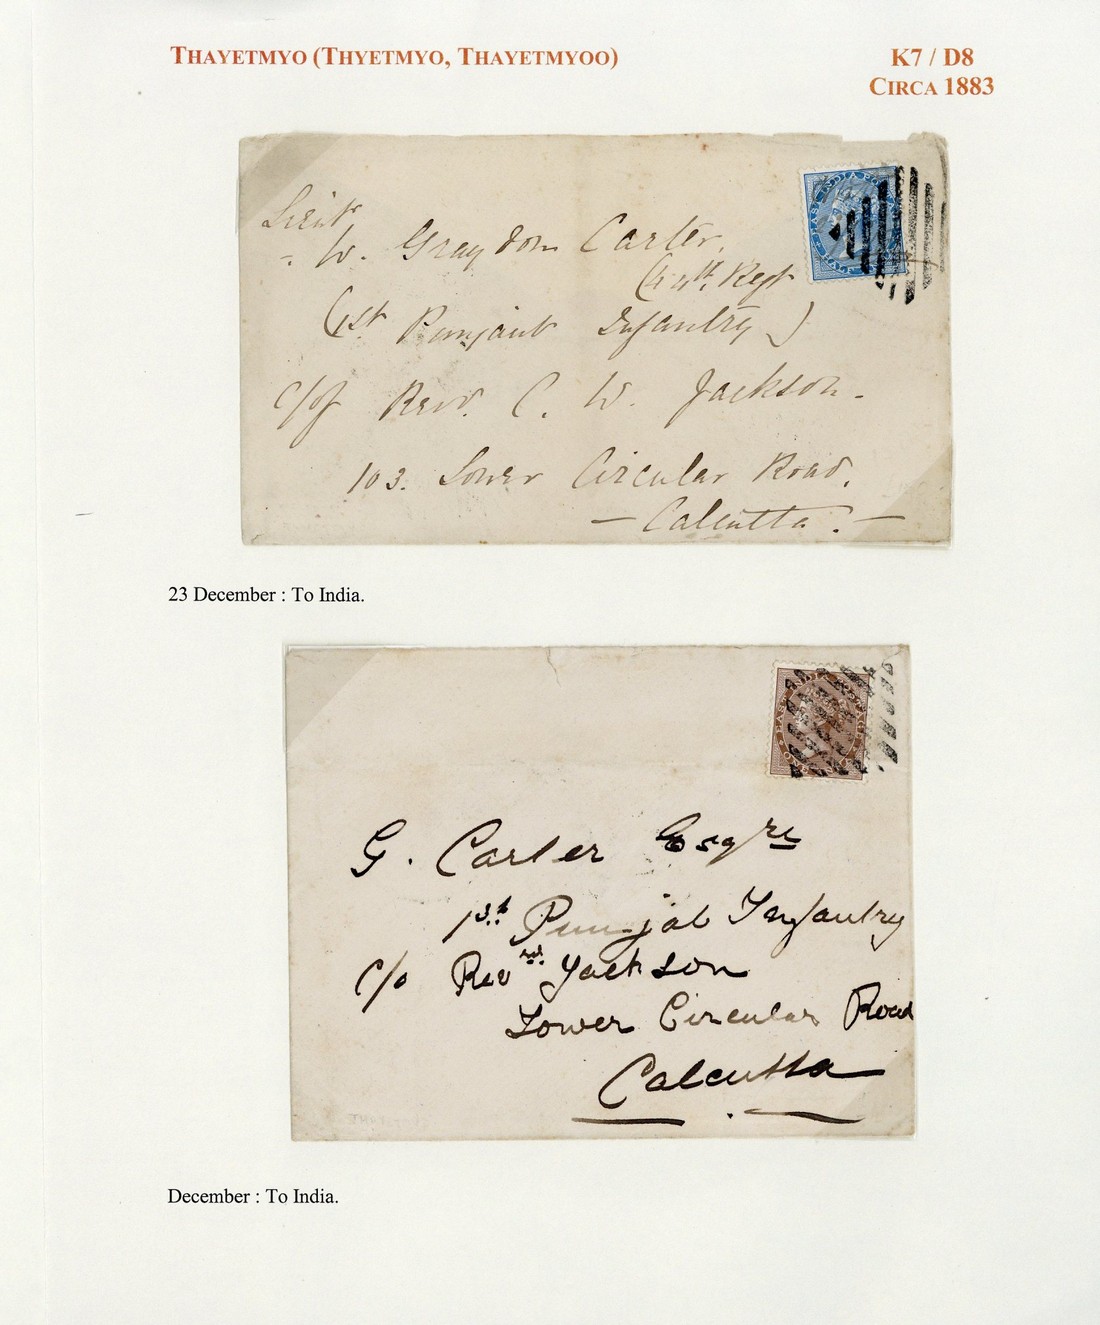 THAYETMYO (THYETMYO, THAYETMYOO)
K7 / D8
CIRCA 1883
EAST INDIA POSTAGE
HALF
Lieut
W. Graydon Carter,
(44th. Regt
(1st Punjaub Infantry)
c/of Revd. C. W. Jackson.
103. Lower Circular Road.
— Calcutta. —
23 December : To India.
EAST INDIA POSTAGE
ONE
G. Carter Esqre
1st Punjab Infantry
c/o Rev Jackson
Lower Circular Road
Calcutta
December : To India.